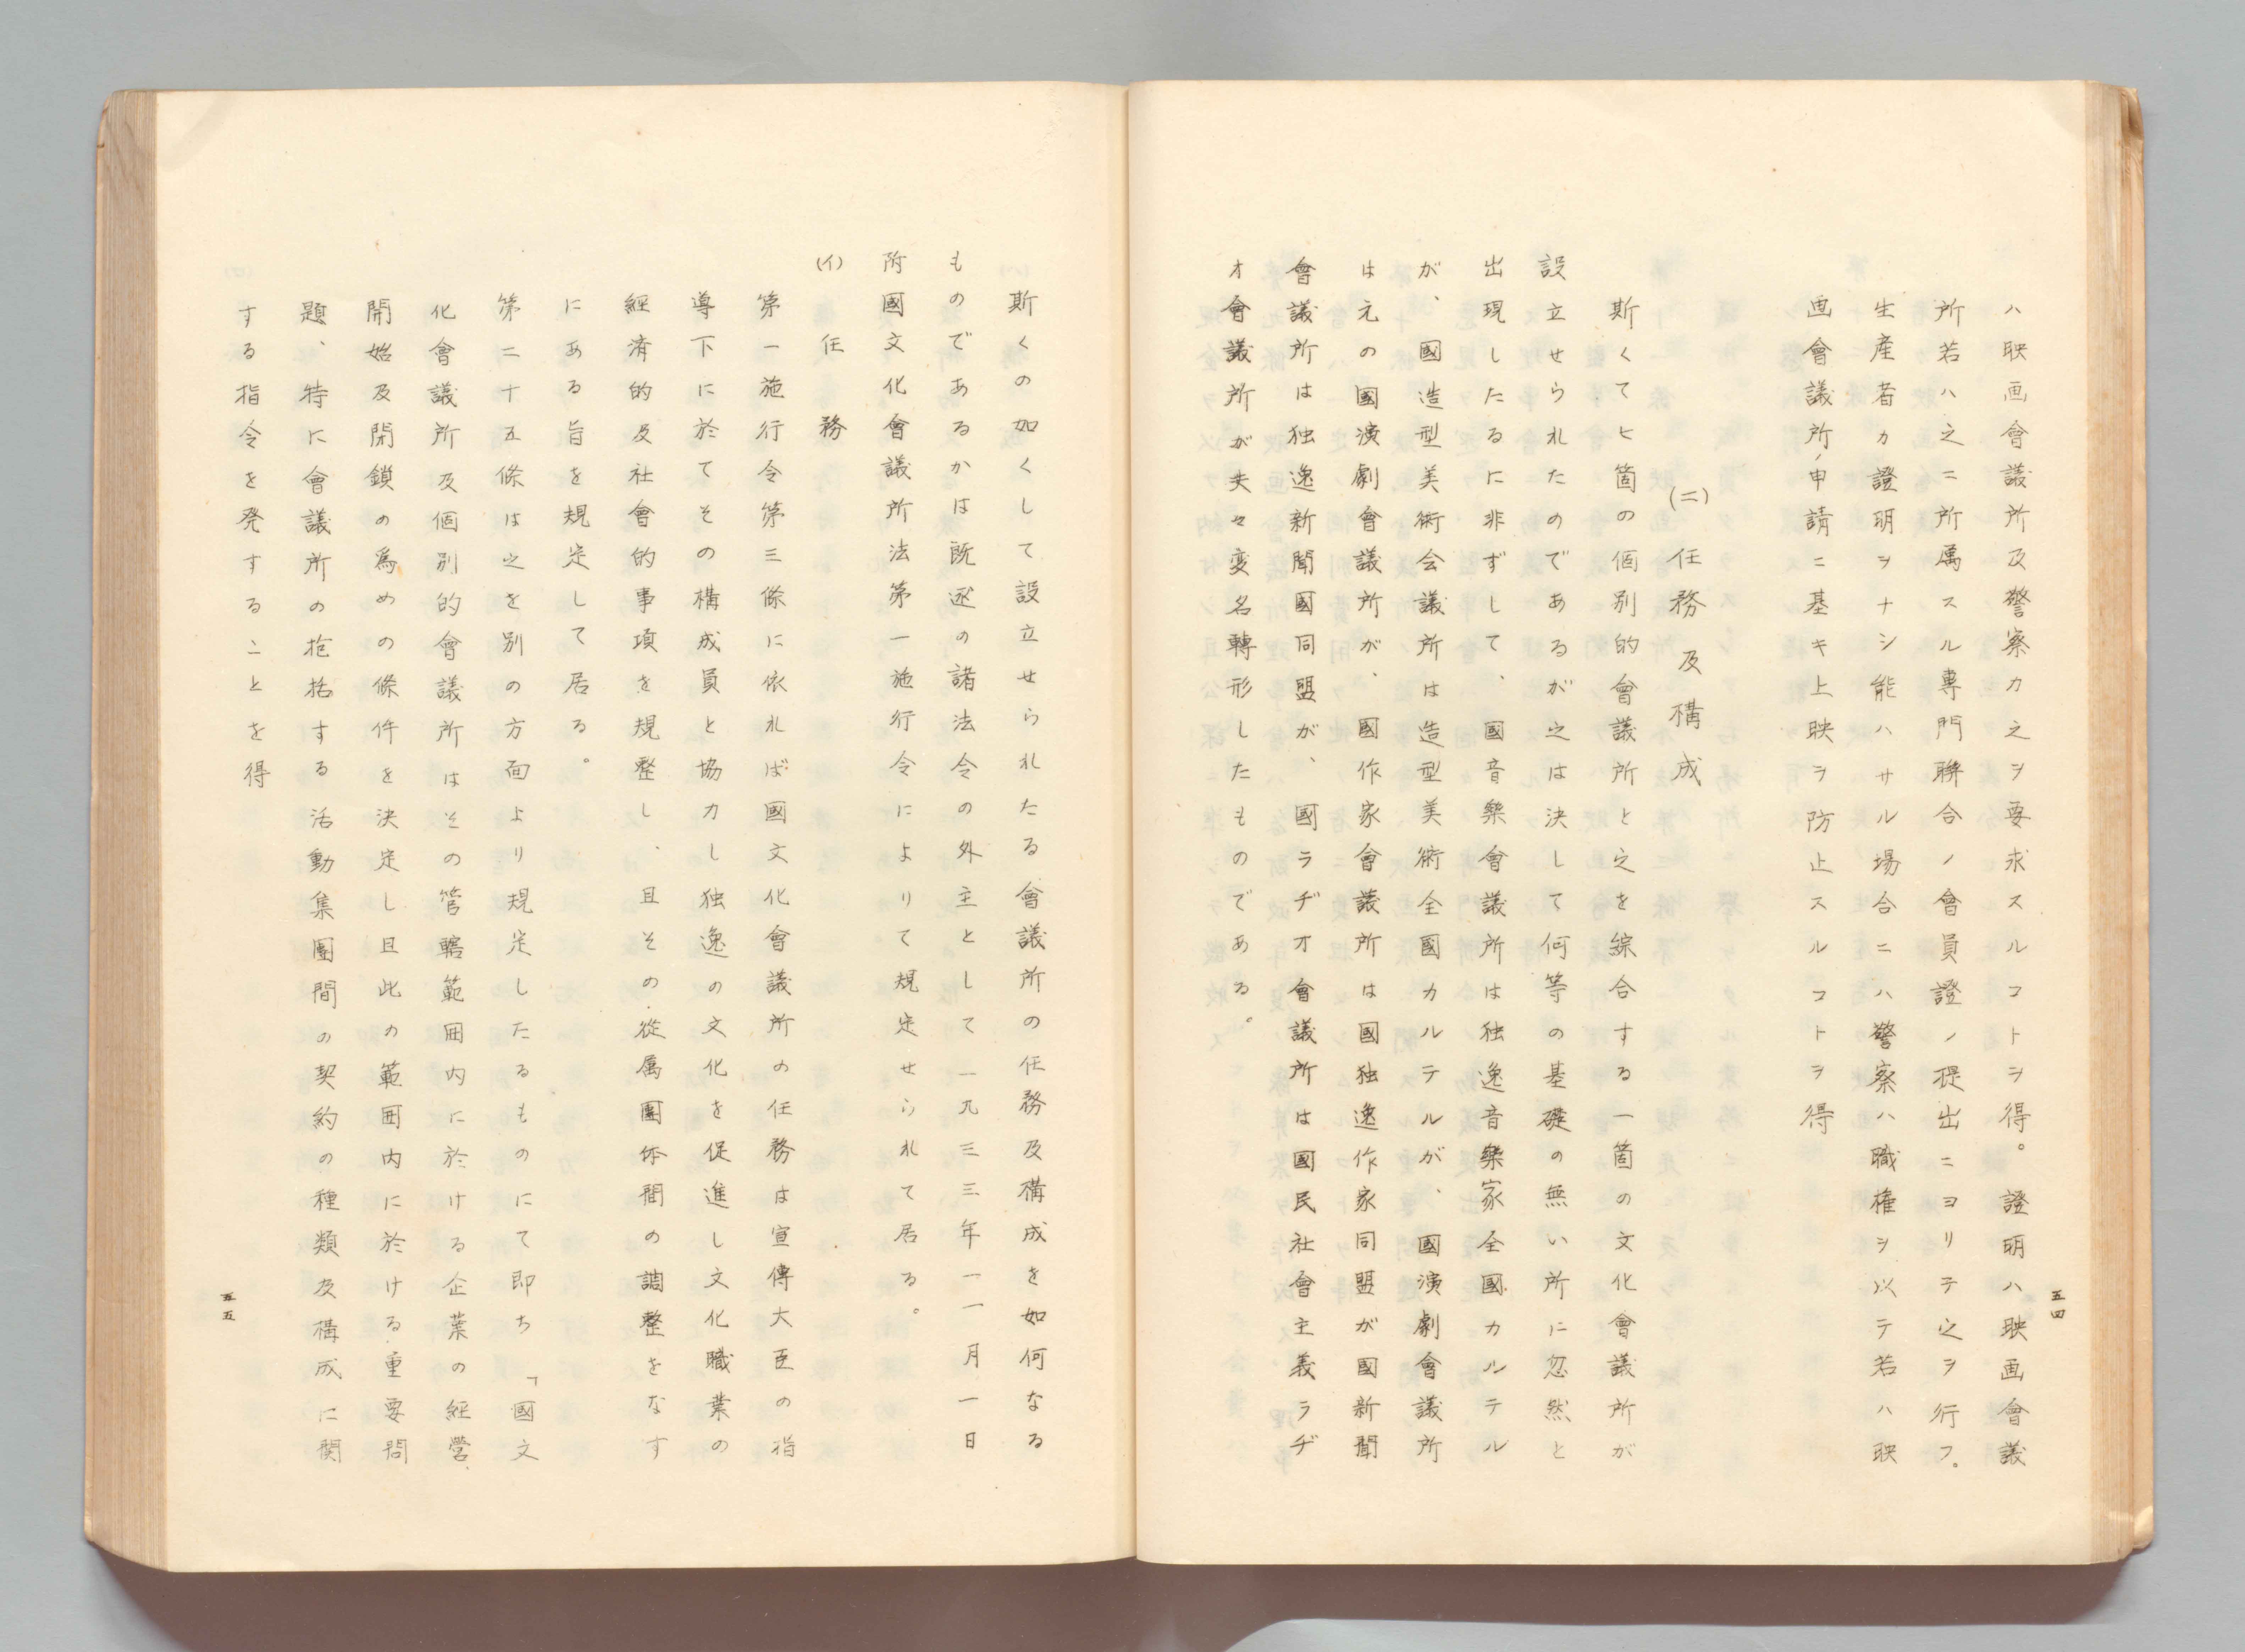 ハ映画會議所及警察カ之ヲ要求スルコトヲ得。證明ハ映画會議
所若ハ之ニ所属スル專門聯合ノ會員證ノ提出ニヨリテ之ヲ行フ。
生産者カ證明ヲナシ能ハサル場合ニハ警察ハ職権ヲ以テ若ハ映
画會議所ノ申請ニ基キ上映ヲ防止スルコトヲ得
(二)任務及構成
斯くて七箇の個別的會議所と之を綜合する一箇の文化會議所が
設立せられたのであるが之は決して何等の基礎の無い所に忽然と
出現したるに非ずして、國音樂會議所は独逸音樂家全國カルテル
が、國造型美術会議所は造型美術全國カルテルが、國演劇會議所
は元の國演劇會議所が、國作家會議所は國独逸作家同盟が國新聞
會議所は独逸新聞國同盟が、國ラヂオ會議所は國民社會主義ラヂ
オ會議所が夫々変名轉形したものである。
五四
斯くの如くして設立せられたる會議所の任務及構成を如何なる
ものであるかは既述の諸法令の外主として一九三三年一一月一日
附國文化會議所法第一施行令によりて規定せられて居る。
(イ)任務
第一施行令第三條に依れば國文化會議所の任務は宣傳大臣の指
導下に於てその構成員と協力し独逸の文化を促進し文化職業の
經済的及社會的事項を規整し、且その從属團体間の調整をなす
にある旨を規定して居る。
第二十五條は之を別の方面より規定したるものにて即ち「國文
化會議所及個別的會議所はその管轄範囲内に於ける企業の経営
開始及閉鎖の爲めの條件を決定し且此の範囲内に於ける重要問
題、特に會議所の抱括する活動集團間の契約の種類及構成に関
する指令を発することを得
五五